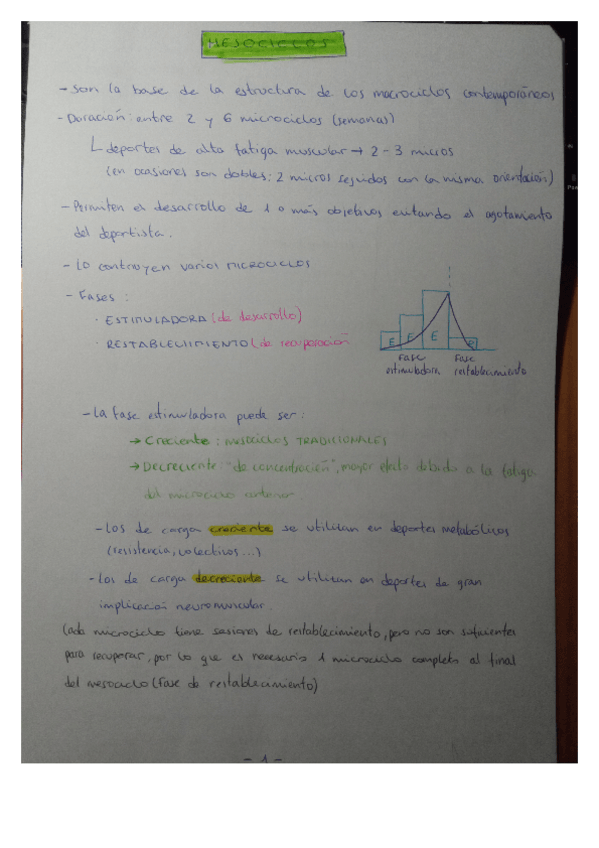 MESOCICLOS
- Son la base de la estructura de los macrociclos contemporáneos
- Duración: entre 2 y 6 microciclos (semanas)
deportes de alta fatiga muscular → 2-3 micros
(en ocasiones son dobles: 2 micros seguidos con la misma orientación)
- Permiten el desarrollo de 1 o más objetivos evitando el agotamiento
del deportista.
- Lo contruyen varios MICROCICLOS
- Fases:
· ESTIMULADORA (de desarrollo)
· RESTABLECIMIENTO (de recuperación
E E E R
FASE estimuladora
FASE restablecimiento
- La fase estimuladora puede ser:
→ Creciente: mesociclos TRADICIONALES
→ Decreciente: "de concentración", mayor efecto debido a la fatiga
del microciclo anterior
- Los de carga creciente se utilizan en deportes metabólicos
(resistencia, colectivos...)
- Los de carga decreciente se utilizan en deportes de gran
implicación neuromuscular.
Cada microciclo tiene sesiones de restablecimiento, pero no son suficientes
para recuperar, por lo que es necesario 1 microciclo completo al final
del mesociclo (fase de restablecimiento)
- 1 -